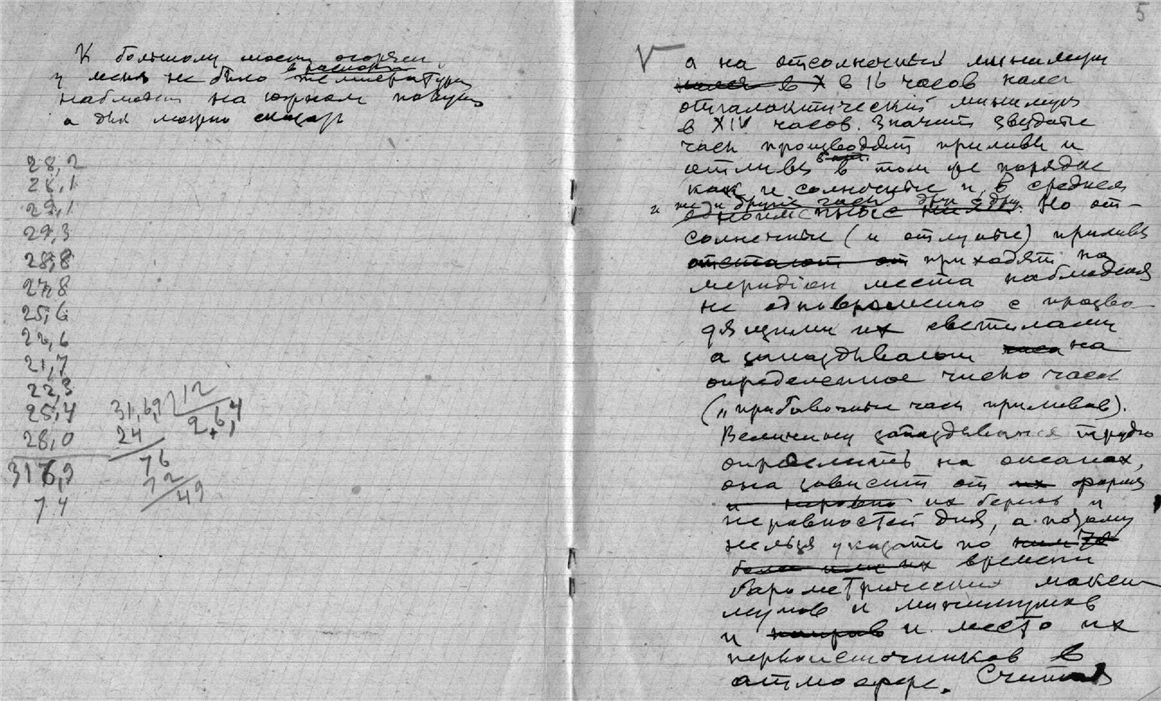 К большому моему огорчен.
у меня не было в распоряж. температурн
наблюден на южном полуш
а для можно сказать
28,2
28,1
29,1
29,3
28,8
27,8
25,6
22,6
21,7
22,3
25,4
28,0
316,9
74
31,6,9 12
24 2,6,4
76
72
49
5
V а на отсолнечный минимум
в X в 16 часов
отгалактический минимум
в XIV часов. Значит звездные
часы производят приливы и
отливы в том же порядке
как и солнечные и в среднем
и Но от-
солнечные (и отлунные) приливы
отстают от приходят на
меридиан места наблюдения
не одновременно с произво-
дящими их светилами
а запаздывают на
определенное число часов
("прибавочные часы приливов").
Величину запаздывания трудно
определить на океанах,
она зависит от их форм
и неровно их берегов и
неровностей дна, а поэтому
нельзя указать по
времени
барометрических макси-
мумов и минимумов
и направ и место их
первоисточников в
атмосфере. Считая